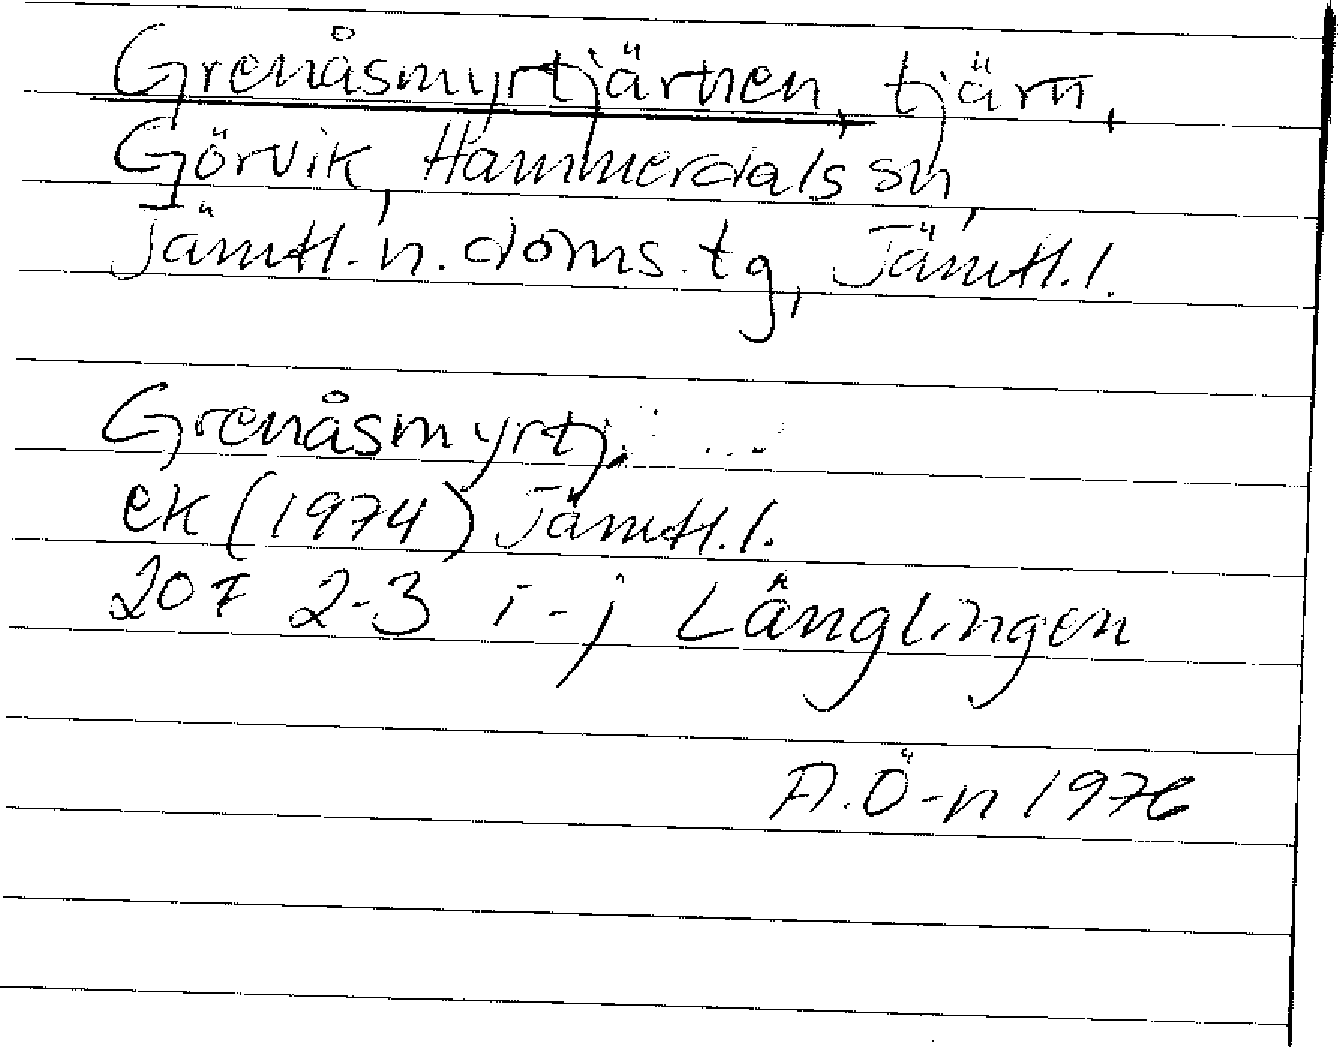 Grenåsmyrtjärnen, tjärn,
Görvik, Hammerdals sn,
Jämtl. n. doms. tg, Jämtl. l.
Grenåsmyrtj.
ek (1974) Jämtl. l.
20F 2-3 i-j Långlingen
A. Ö-n 1976